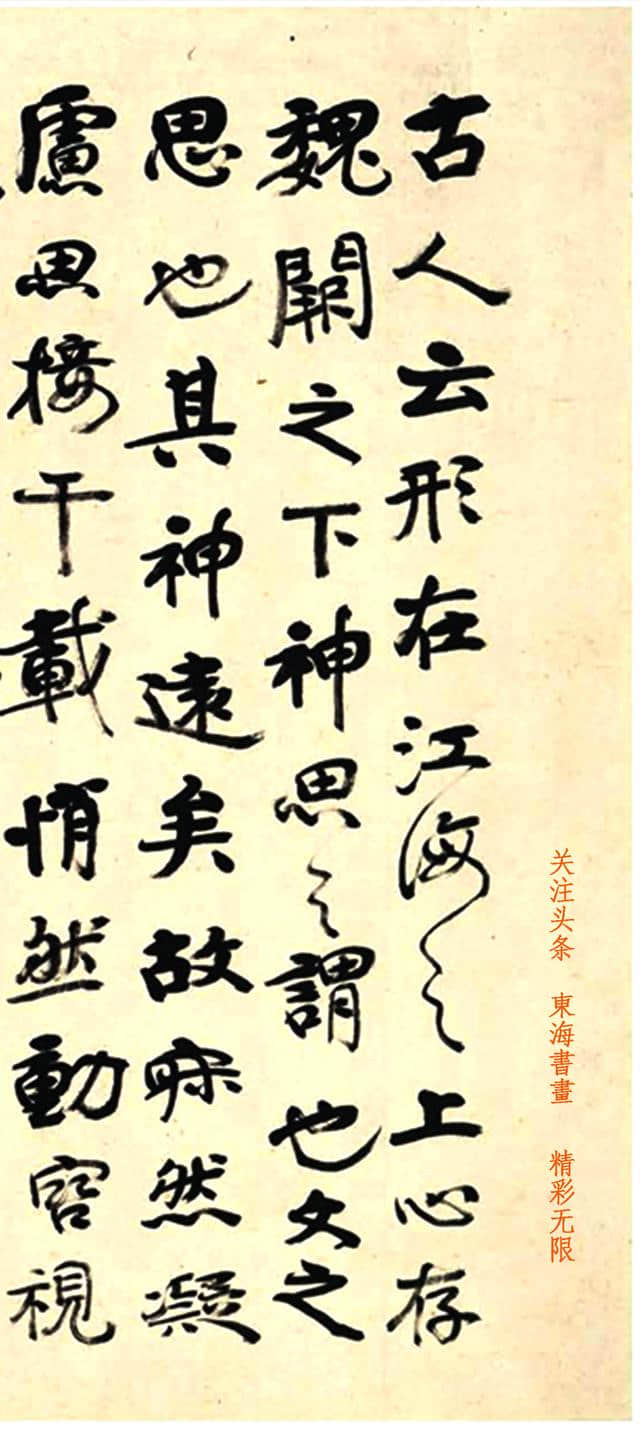 关注头条 東海書畫 精彩无限
古人云形在江海之上心存
魏闕之下神思之謂也文之
思也其神遠矣故寂然凝
慮思接千載悄然動容視